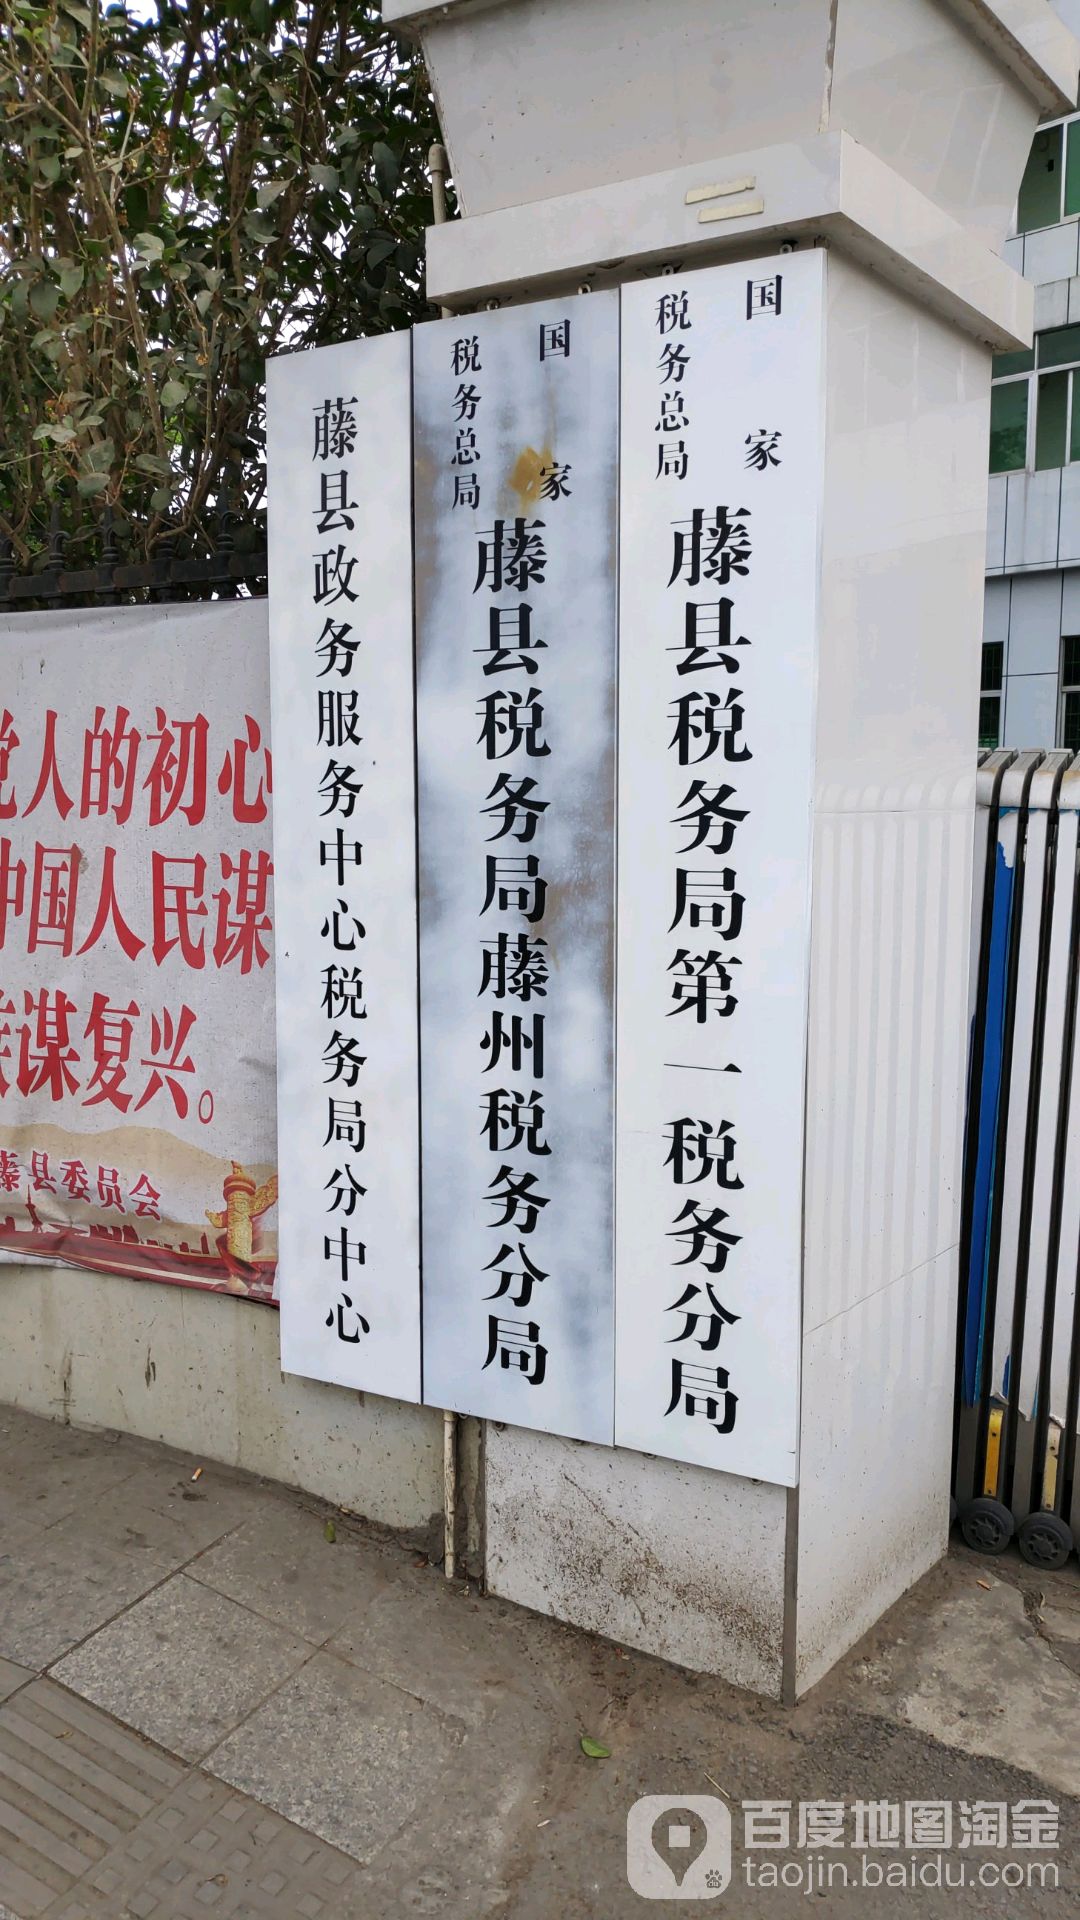 国家
税务总局
藤县税务局第一税务分局
国家
税务总局
藤县税务局藤州税务分局
藤县政务服务中心税务局分中心
党人的初心
中国人民谋
谋复兴。
藤县委员会
百度地图淘金
taojin.baidu.com